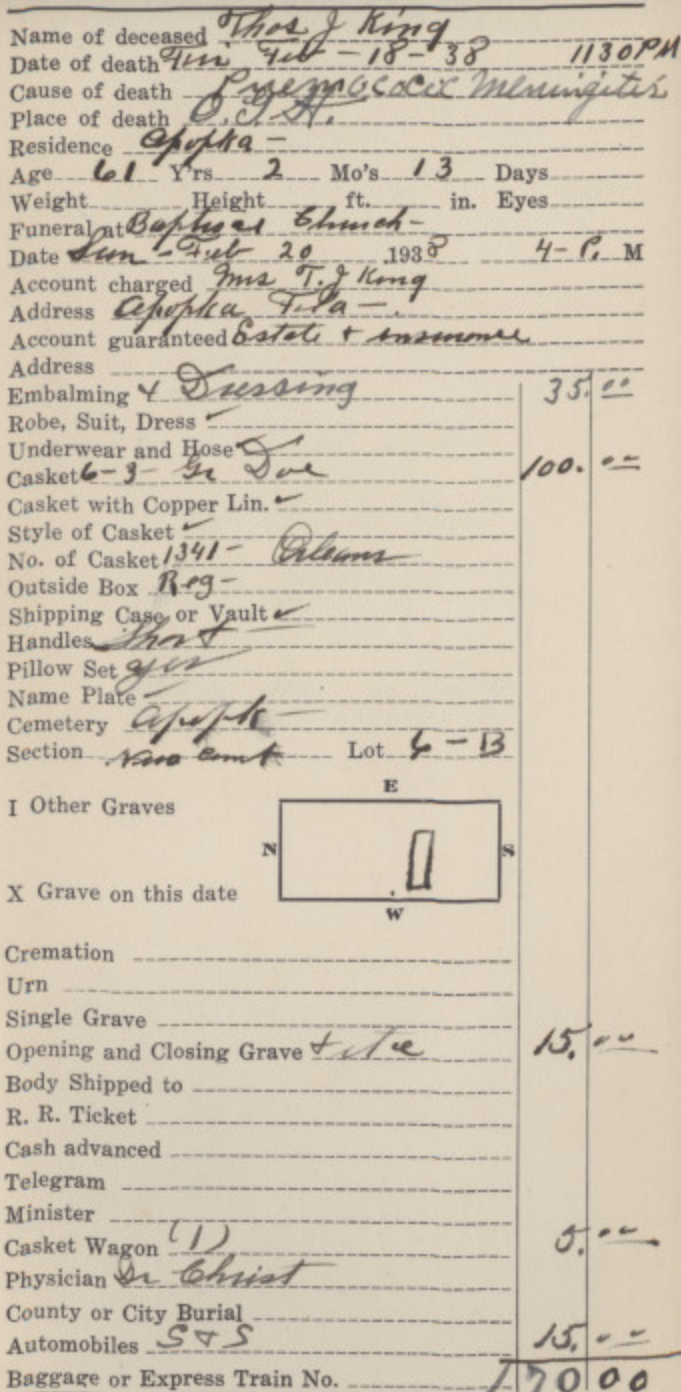 Name of deceased Thos J King
Date of death Fri Feb - 18 - 38 1130 PM
Cause of death Pnemococcic Meningites
Place of death O.G.H.
Residence Apopka -
Age 61 Y'rs 2 Mo's 13 Days
Weight Height ft. in. Eyes
Funeral at Baptist Church -
Date Sun - Feb 20 1938 4 - P. M
Account charged Mrs T. J King
Address Apopka Fla -
Account guaranteed Estate + insurance
Address
Embalming & Dressing 35.00
Robe, Suit, Dress ✓
Underwear and Hose ✓
Casket 6-3- Gr Doe 100.00
Casket with Copper Lin. ✓
Style of Casket ✓
No. of Casket 1341 - Orleans
Outside Box Reg -
Shipping Case or Vault ✓
Handles Short
Pillow Set yes
Name Plate ✓
Cemetery Apopk -
Section Lot 6 - B
E
I Other Graves
N S
X Grave on this date
W
Cremation
Urn
Single Grave
Opening and Closing Grave + 15.00
Body Shipped to
R. R. Ticket
Cash advanced
Telegram
Minister
Casket Wagon (1) 5.00
Physician Dr Christ
County or City Burial
Automobiles S & S 15.00
Baggage or Express Train No. 170 00